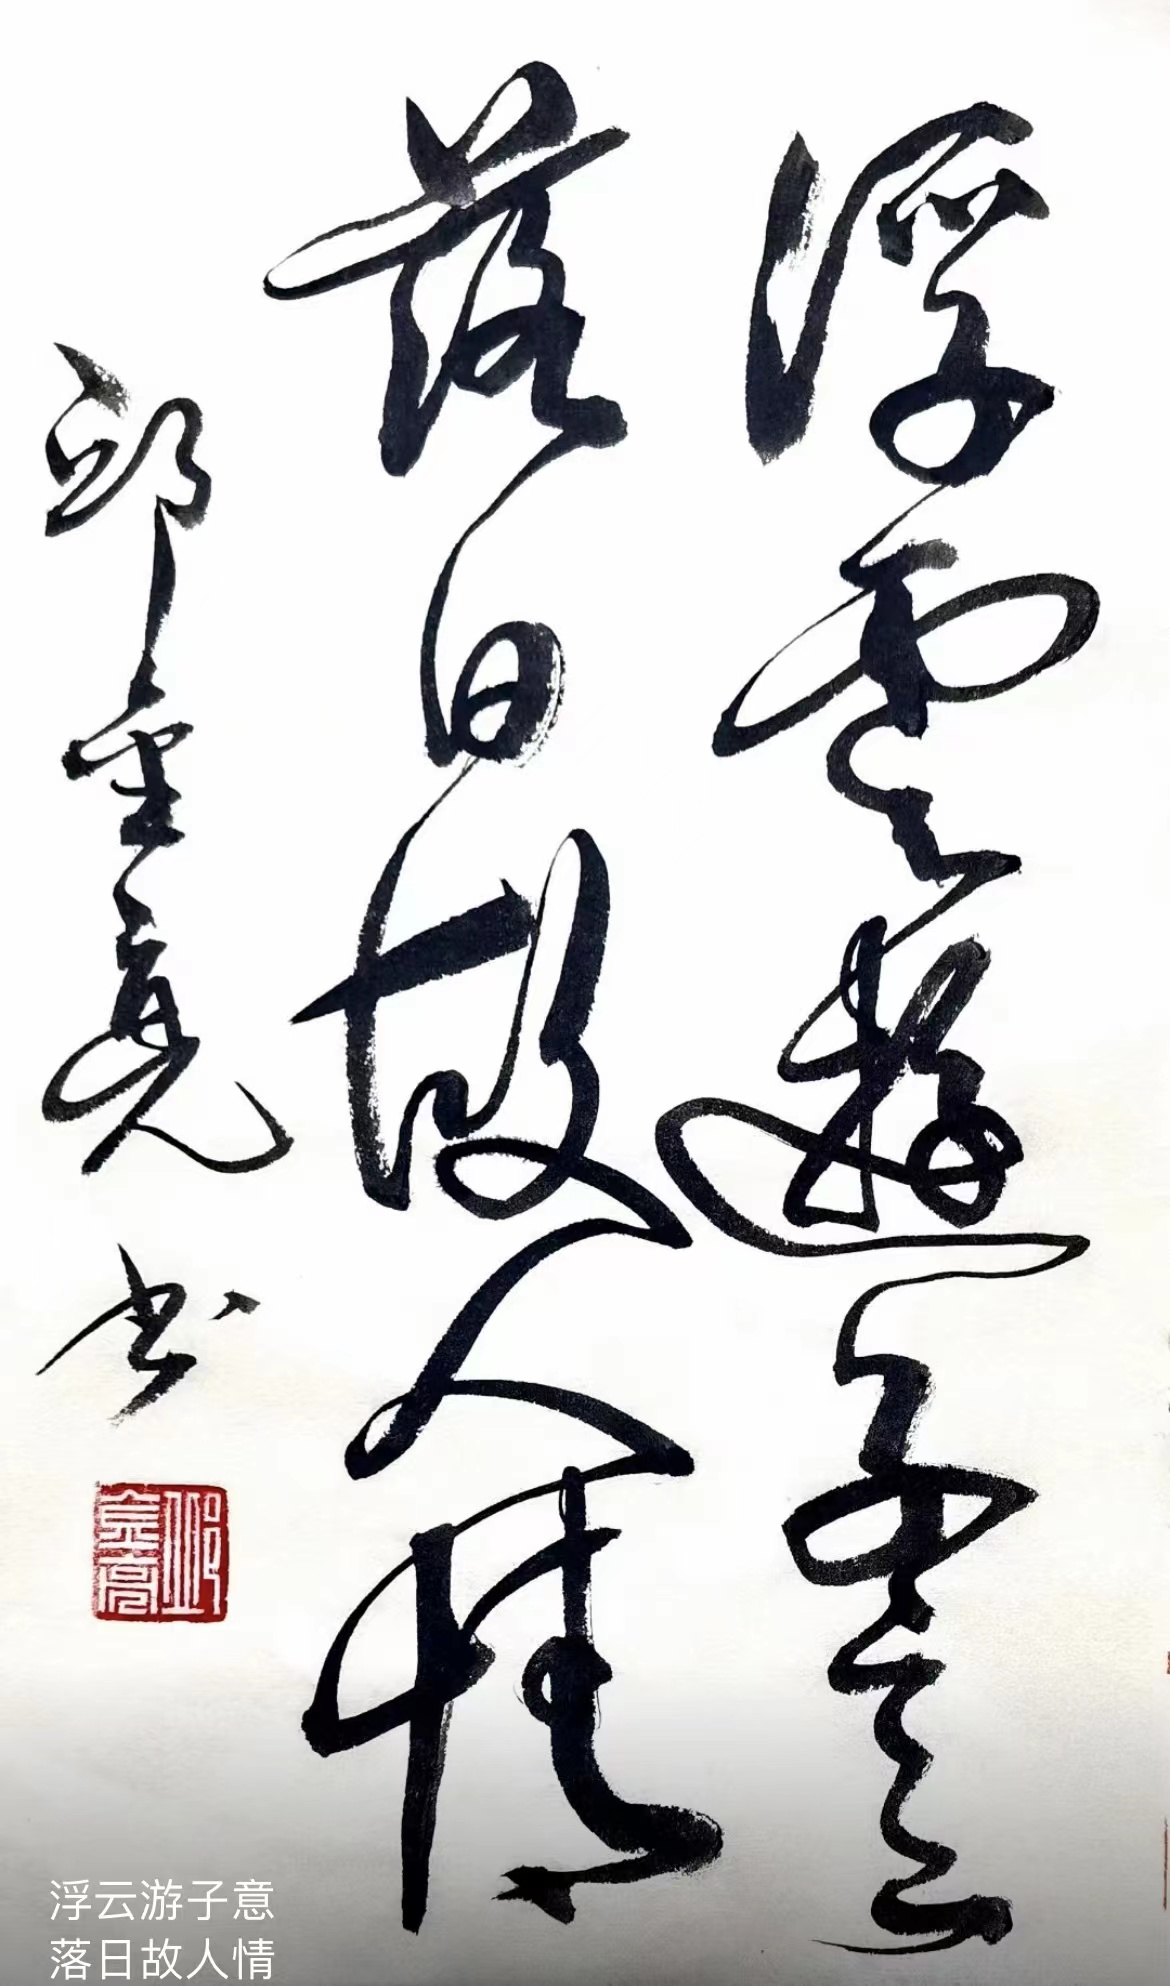 浮雲遊子意
落日故人情
邱金亮书
浮云游子意
落日故人情